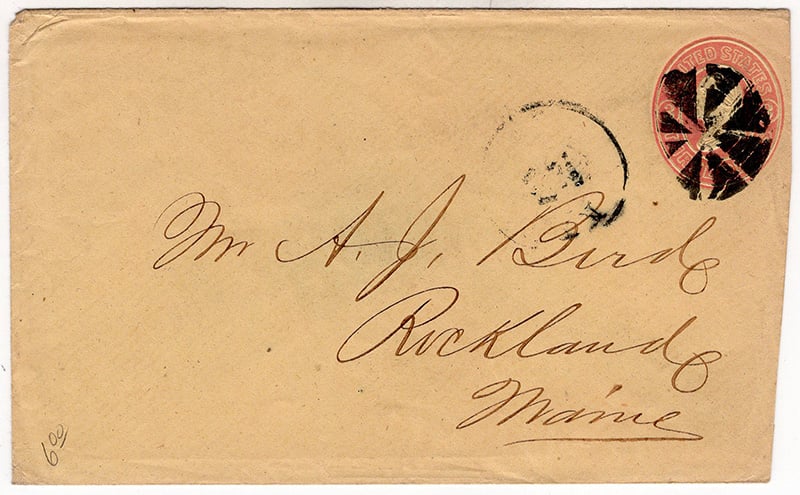 UNITED STATES
Mr A. J. Bird
Rockland
Maine
6 00